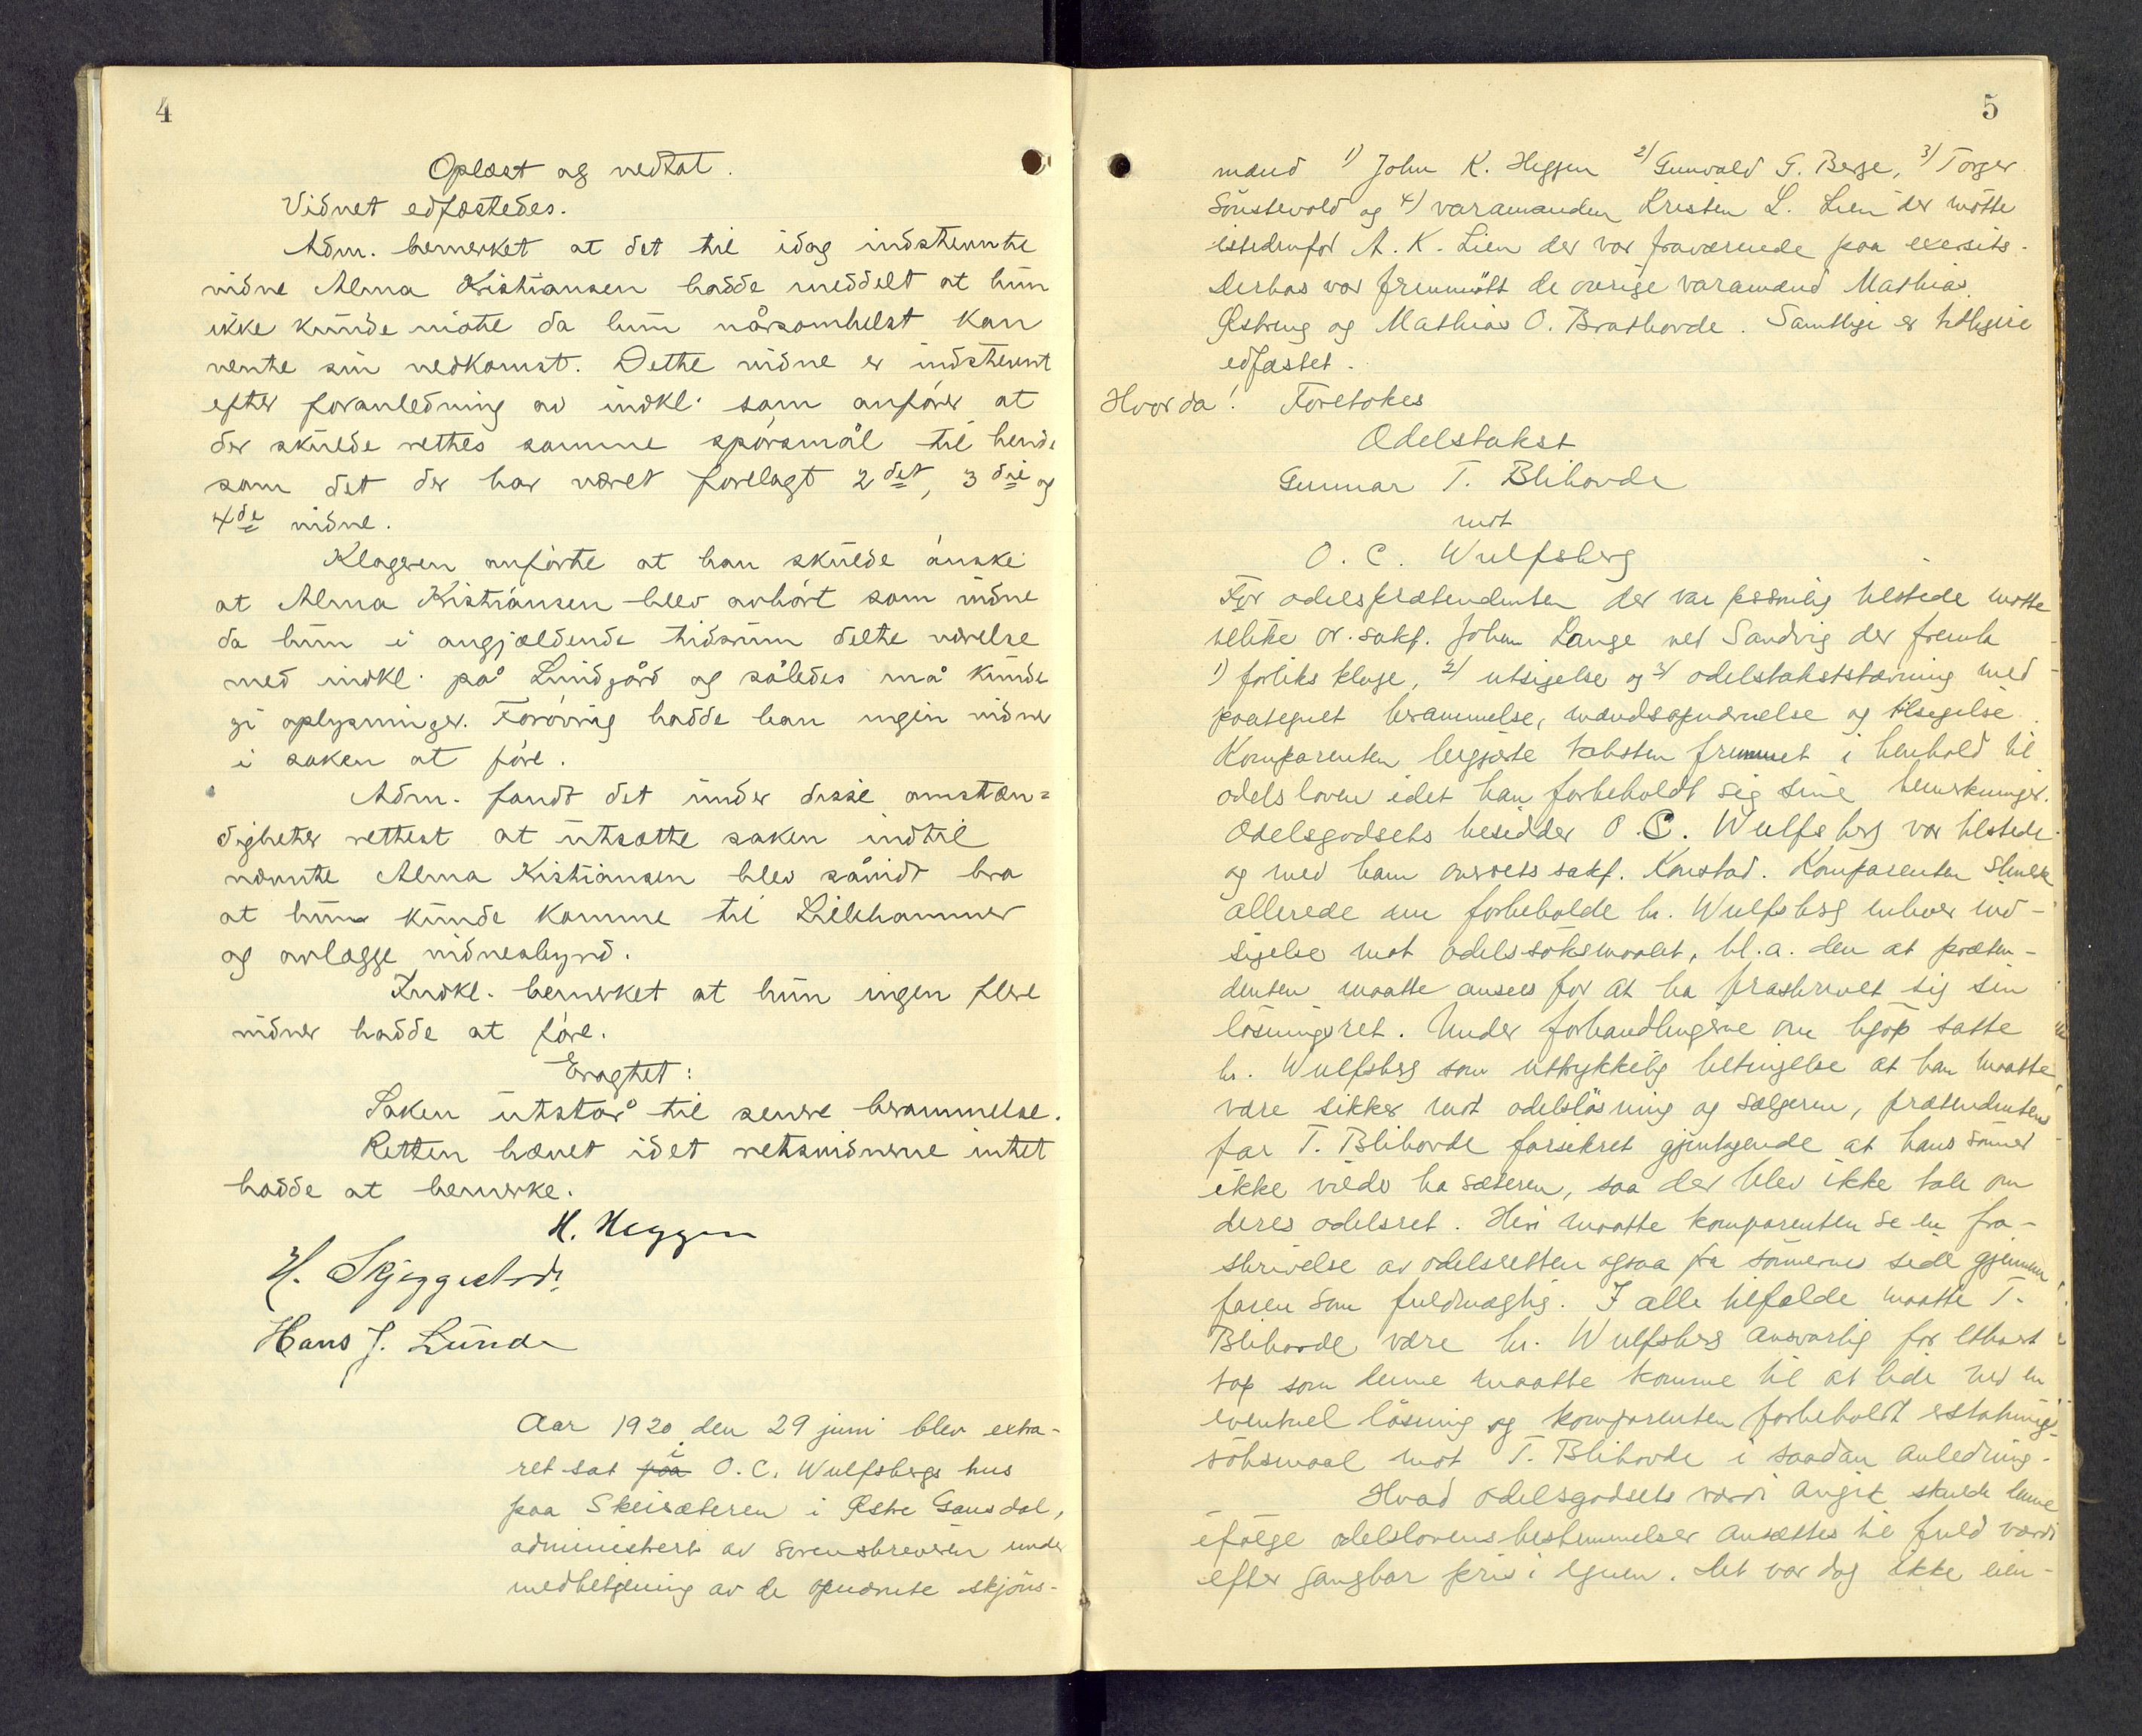 4
Oplæst og vedtat.
Vidnet edfæstedes.
Adm. bemerket at det til idag indstevnte
vidne Alma Kristiansen hadde meddelt at hun
ikke kunde møte da hun nårsomhelst kan
vente sin nedkomst. Dette vidne er indstevnt
efter foranledning av indkl. som anfører at
der skulde rettes samme spørsmål til hende
som det der har været forelagt 2det, 3die og
4de vidne.
Klageren anførte at han skulde ønske
at Alma Kristiansen blev avhørt som vidne
da hun i angjældende tidsrum delte værelse
med indkl. på Lundgård og således må kunde
gi oplysninger. Forøvrig hadde han ingen vidner
i saken at føre.
Adm. fandt det under disse omstæn=
digheter rettest at utsætte saken indtil
nævnte Alma Kristiansen blev såvidt bra
at hun kunde komme til Lillehammer
og avlægge vidnesbyrd.
Indkl. bemerket at hun ingen flere
vidner hadde at føre.
Eragtet:
Saken utstår til senere berammelse.
Retten hævet idet retsvidnerne intet
hadde at bemerke.
H. Heggen
H. Skjeggestad
Hans J. Lunde
Aar 1920 den 29 juni blev extra-
ret sat paa i O. C. Wulfsbergs hus
paa Skeisæteren i Østre Gausdal,
administrert av sorenskriveren under
medbetjening av de opnævnte skjøns-
5
mænd 1) John K. Heggen 2) Gunvald G. Berge, 3) Torger
Sönstevold og 4) varamanden Kristen L. Lien der mötte
istedenfor A. K. Lien der var fraværende paa exersits.
Derhos var fremmött de övrige varamænd Mathias
Østreng og Mathias O. Brathovde. Samtlige er tidligere
edfæstet.
Hvorda! Foretokes
Odelstakst
Gunnar T. Blihovde
mot
O. C. Wulfsberg
For odelsprætendenten der var personlig tilstede mötte
o.r.sakf. Johan Lange ved Sandvig der fremla
1) forliks klage, 2) utsigelse og 3) odelstakststævning med
paategnet berammelse, mandsopnævnelse og tilsigelse.
Komparenten begjærte taksten fremmet i henhold til
odelsloven idet han forbeholdt sig sine bemerkninger.
Odelsgodsets besidder O. C. Wulfsberg var tilstede
og med ham overrets sakf. Konstad. Komparenten
allerede nu forbeholde hr. Wulfsberg enhver ind-
sigelse mot odelssöksmaalet, bl.a. den at præten-
denten maatte ansees for at ha fraskrevet sig sin
lösningsret. Under forhandlingerne om kjöp satte
hr. Wulfsberg som uttrykkelig betingelse at han maatte
være sikker mot odelslösning og sælgeren, prætendentens
far T. Blihovde forsikret gjentagende at hans sönner
ikke vilde ha sæteren, saa der blev ikke tale om
deres odelsret. Heri maatte komparenten se en fra-
skrivelse av odelsretten ogsaa fra sönnernes side gjennem
faren som fuldmægtig. I alle tilfælde maatte T.
Blihovde være hr. Wulfsberg ansvarlig for ethvert
tap som denne maatte komme til at lide ved en
eventuel lösning og komparenten forbeholdt erstatnings-
söksmaal mot T. Blihovde i saadan anledning.
Hvad odelsgodsets værdi angik skulde denne
ifölge odelslovens bestemmelser ansættes til fuld værdi
efter gangbar pris i egnen. Det var dog ikke eien-